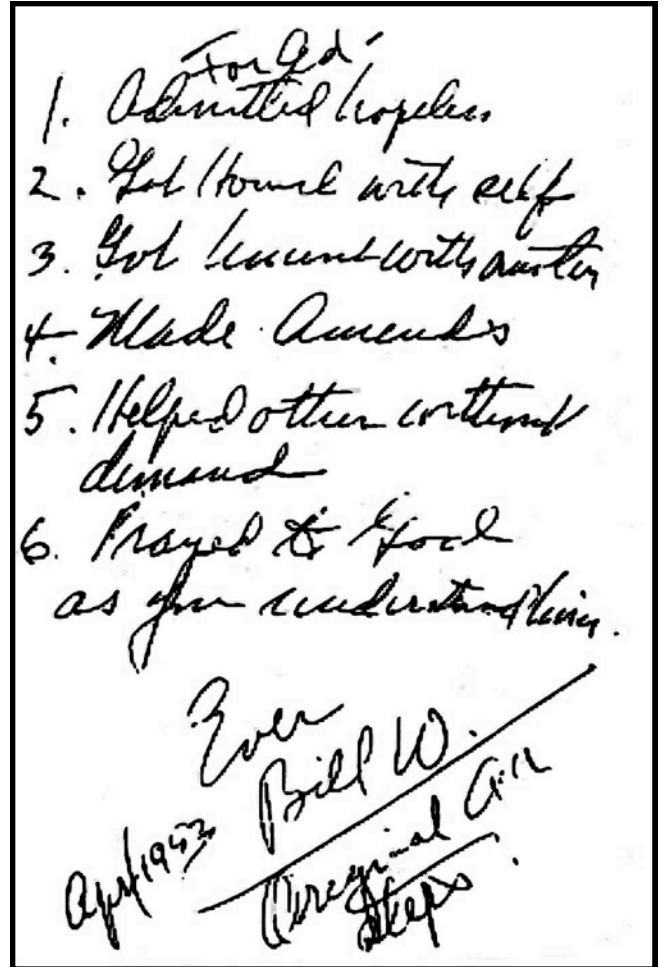 For Ed
1. Admitted hopeless
2. Got Honest with self
3. Got honest with another
4. Made Amends
5. Helped others without
demand
6. Prayed to God
as you understand him.
Ever
Bill W.
Apr/1953
Original AA
Steps.